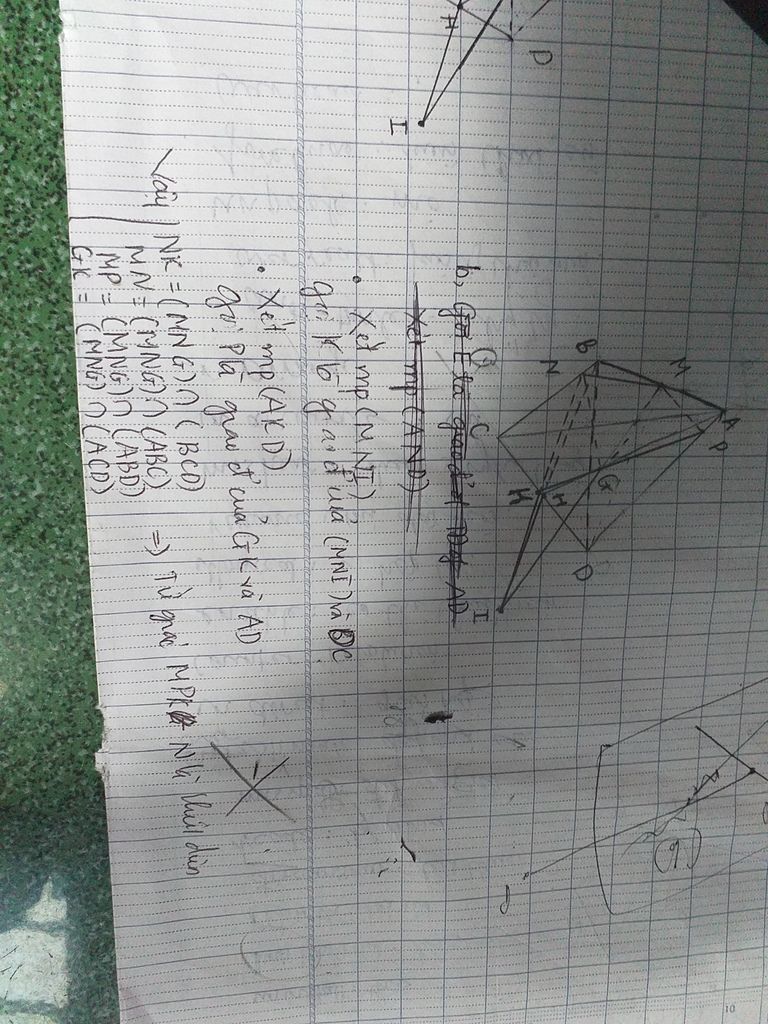 H
D
I
A
P
M
B
N
G
Q
C
H
H
D
I
(q)
b, Gọi E là giao
Xét mp (AND)
• Xét mp (MNI)
gọi K là g và (MNI) và DC
• Xét mp (AKD)
gọi P là giao đ' của GK và AD
Vậy NK = (MNG) ∩ (BCD)
MN = (MNG) ∩ (ABC)
MP = (MNG) ∩ (ABD)
GK = (MNG) ∩ (ACD)
=> Tứ giác MPK N là thiết diện
10